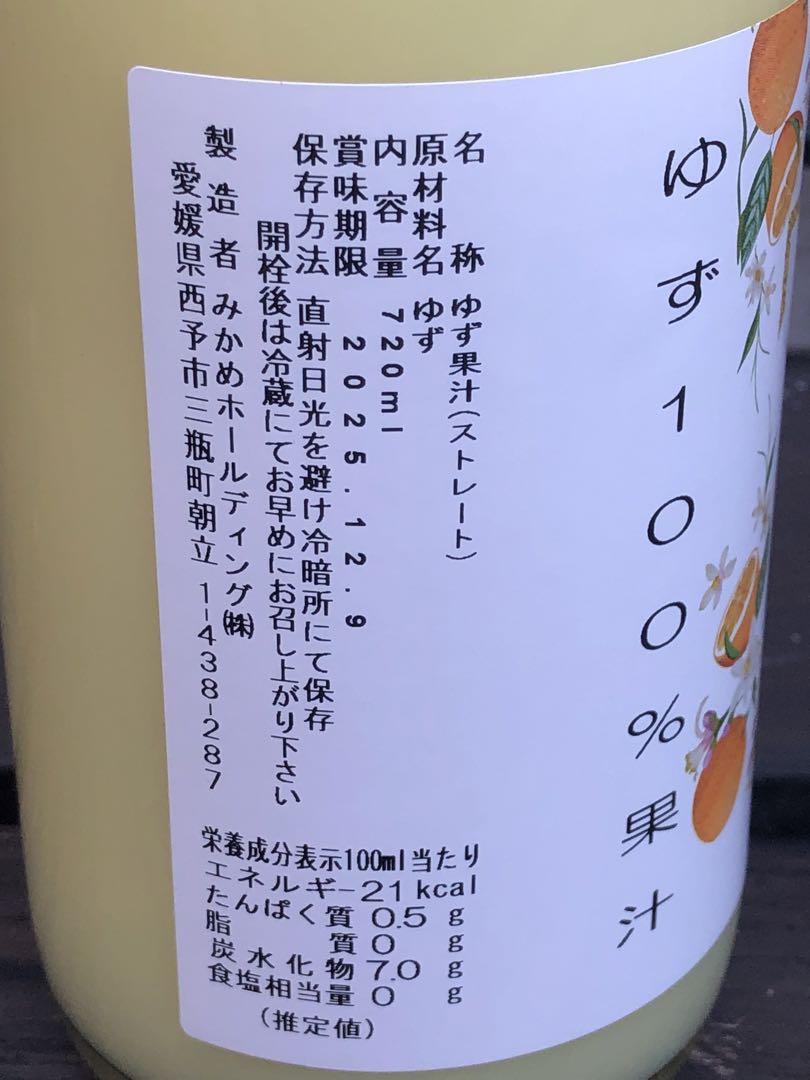 ゆず100%果汁
名称 ゆず果汁(ストレート)
原材料名 ゆず
内容量 720ml
賞味期限 2025.12.9
保存方法 直射日光を避け冷暗所にて保存
開栓後は冷蔵にてお早めにお召し上がり下さい
製造者 みかめホールディング㈱
愛媛県西予市三瓶町朝立1-438-287
栄養成分表示100ml当たり
エネルギー21kcal
たんぱく質 0.5g
脂質 0g
炭水化物 7.0g
食塩相当量 0g
(推定値)